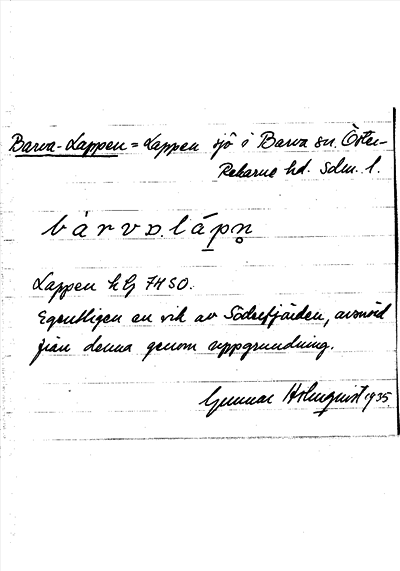 Barva-Lappen = Lappen sjö i Barva sn. Öster-
Rekarne hd. Sdm. l.
bárvɒ.lápn̥
Lappen k bl 74 SO.
Egentligen en vik av Södrefjärden, avsnörd
från denna genom uppgrundning.
Gunnar Holmquist 1935